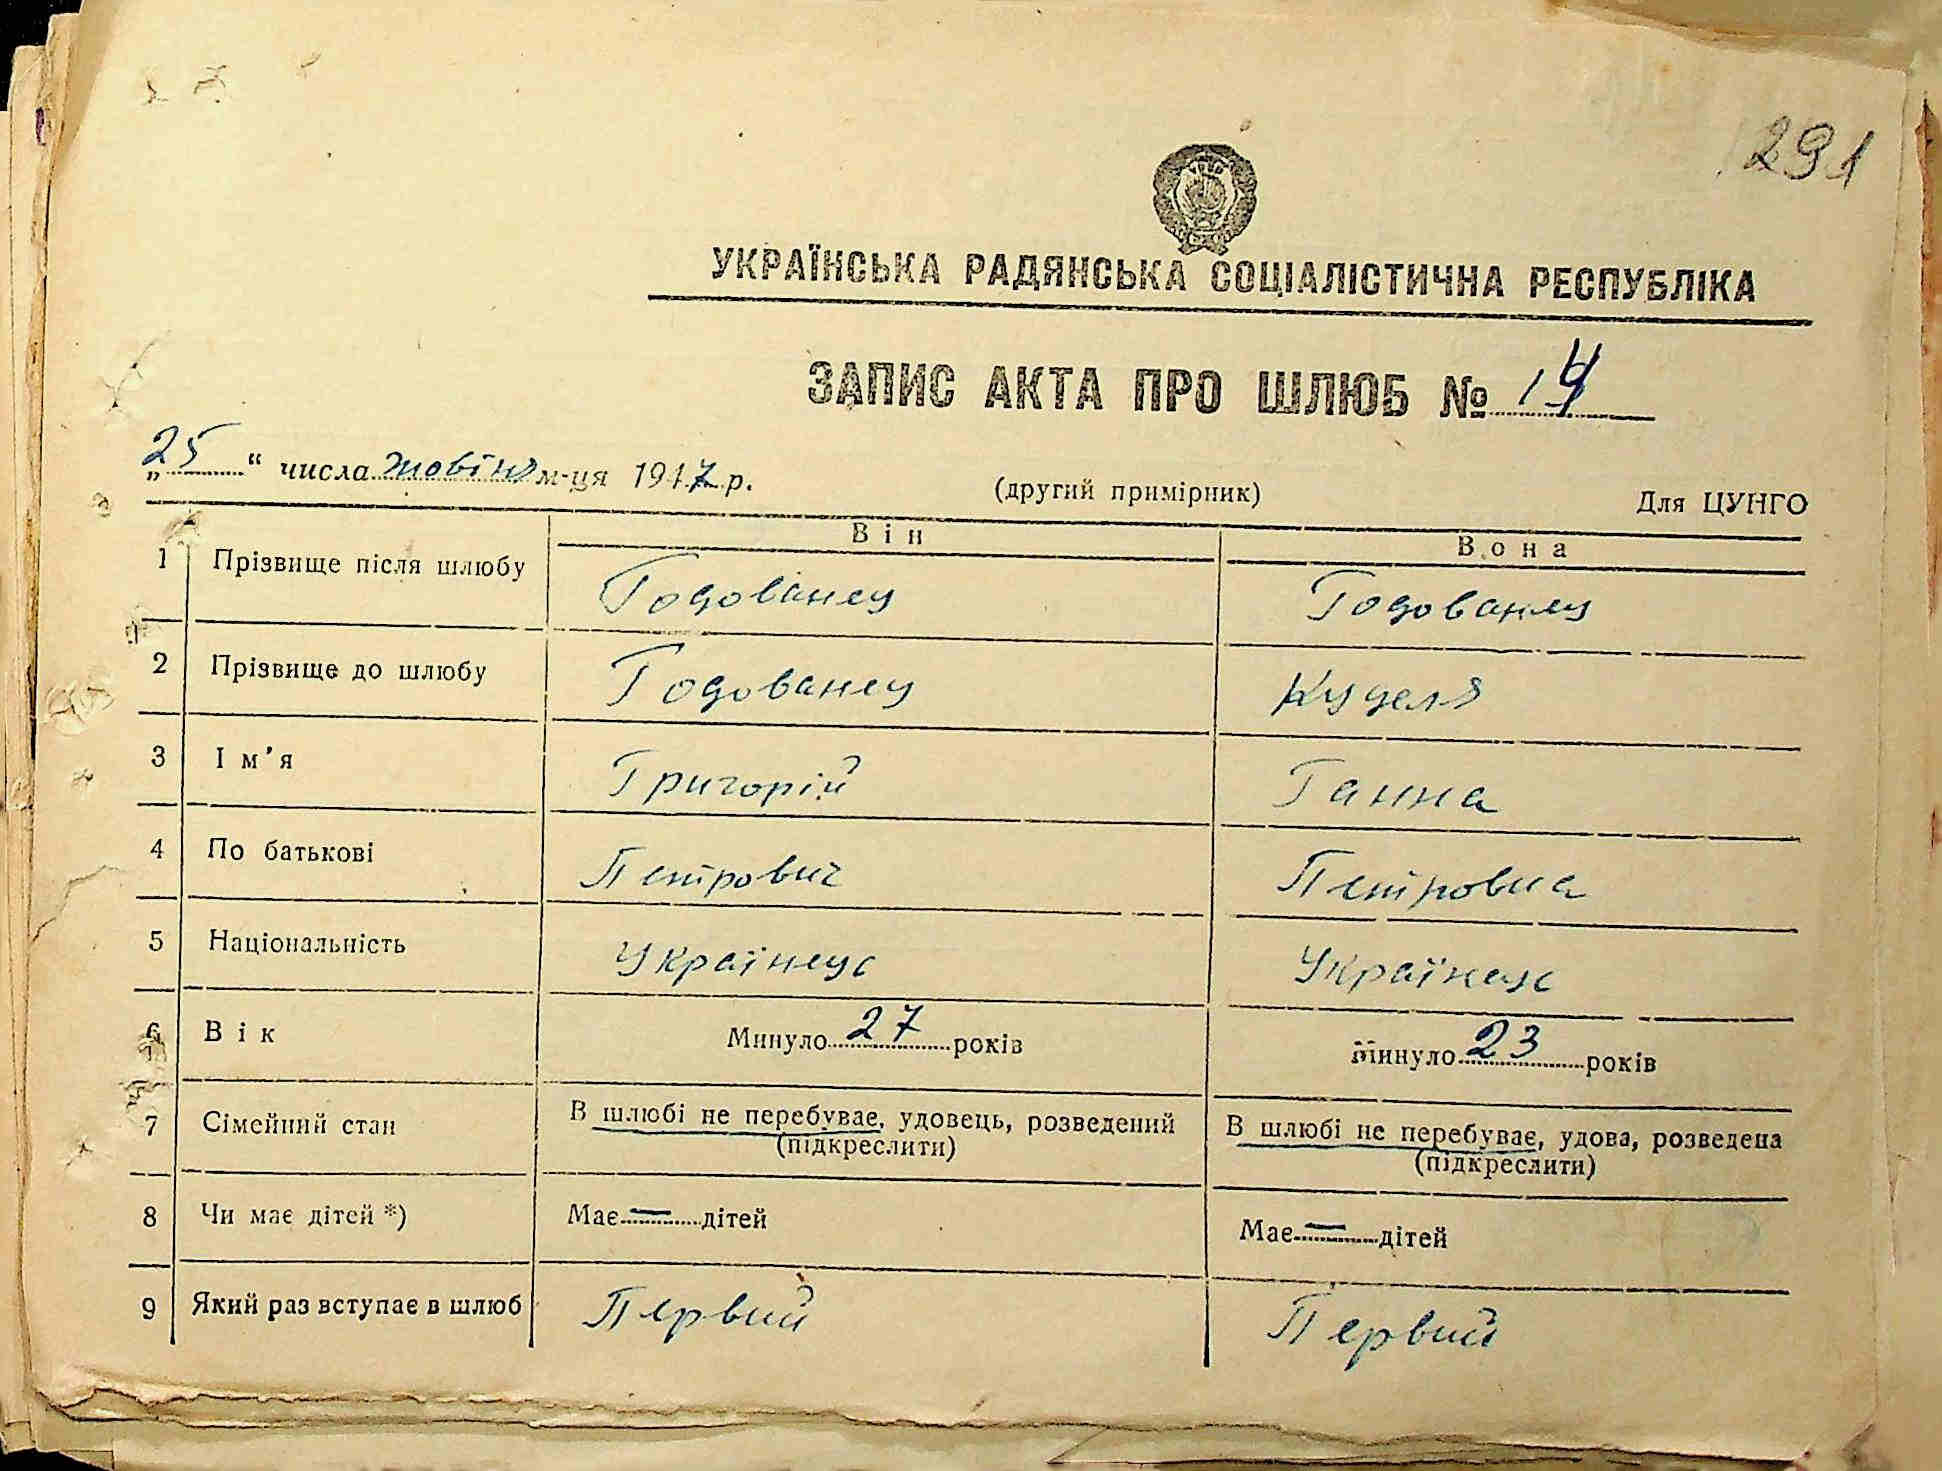 291
УКРАЇНСЬКА РАДЯНСЬКА СОЦІАЛІСТИЧНА РЕСПУБЛІКА
ЗАПИС АКТА ПРО ШЛЮБ № 14
„25“ числа жовтня м-ця 1947 р. (другий примірник) Для ЦУНГО
Він Вона
1 Прізвище після шлюбу Годованец Годованец
2 Прізвище до шлюбу Годованец Куделя
3 Ім’я Григорій Ганна
4 По батькові Петрович Петровна
5 Національність Українец Українка
6 Вік Минуло 27 років Минуло 23 років
7 Сімейний стан В шлюбі не перебуває, удовець, розведений В шлюбі не перебуває, удова, розведена
(підкреслити) (підкреслити)
8 Чи має дітей *) Має — дітей Має — дітей
9 Який раз вступає в шлюб Первий Первий